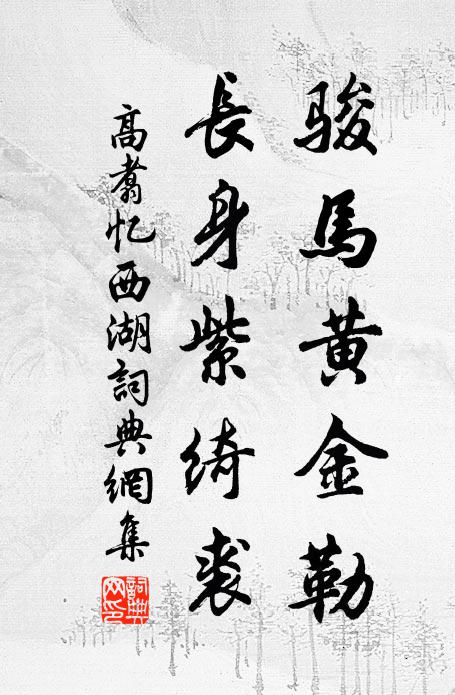 骏馬黄金勒
長身紫绮裘
高翥忆西湖詞典網集
詞典网印